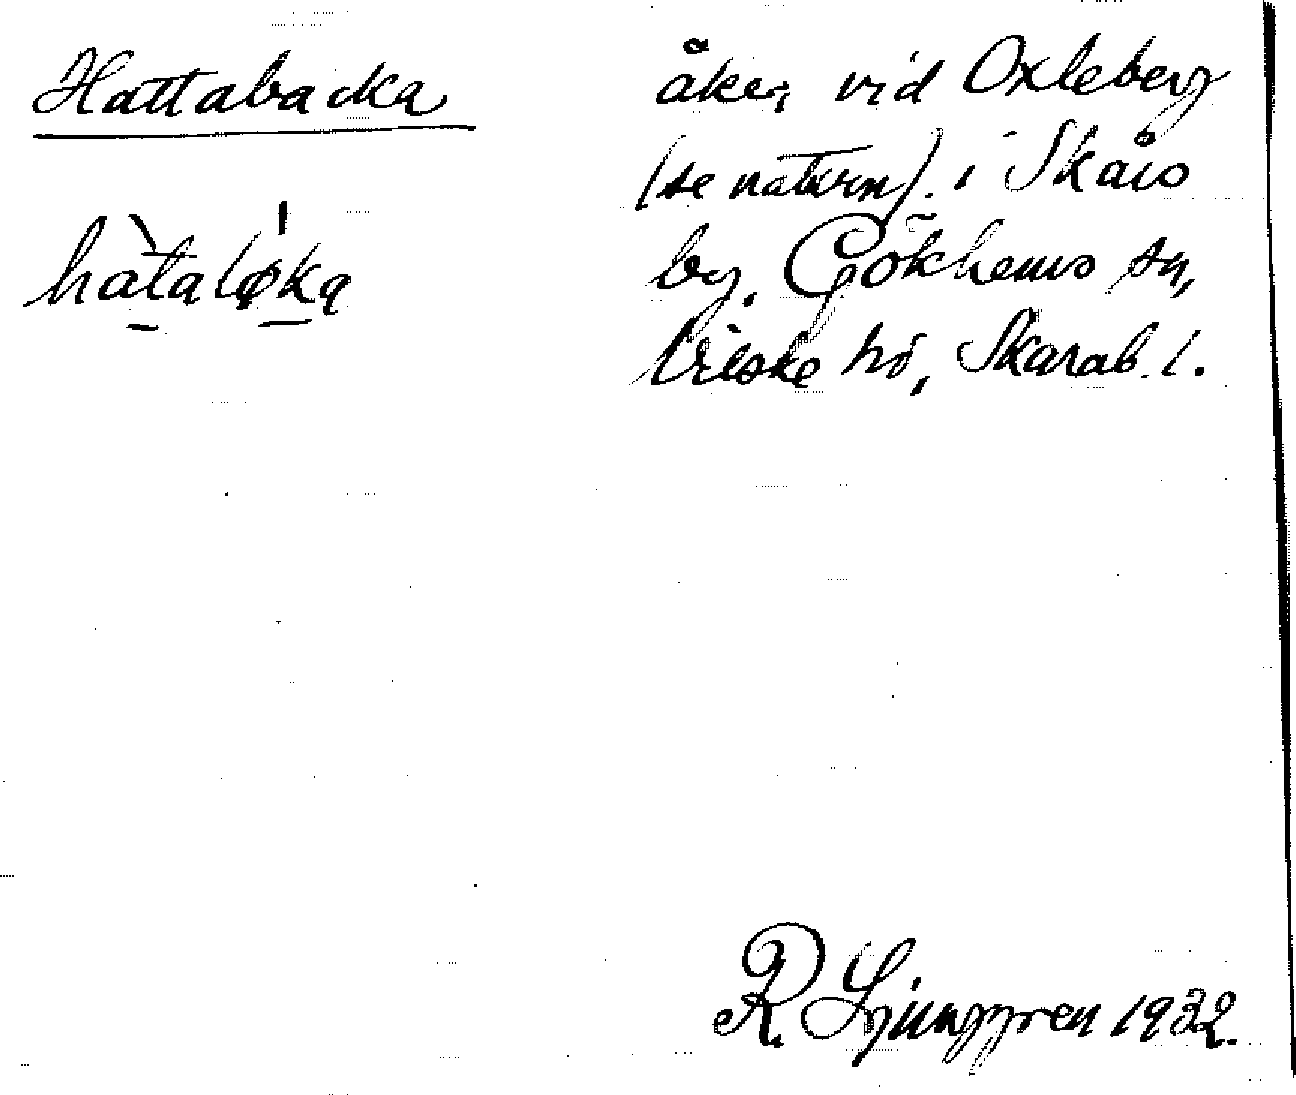 Hattabacka
åker vid Oxleberg
(se naturn). i Skårs
by, Gökhems sn,
Vilske hd, Skarab. l.
R Ljunggren 1932.